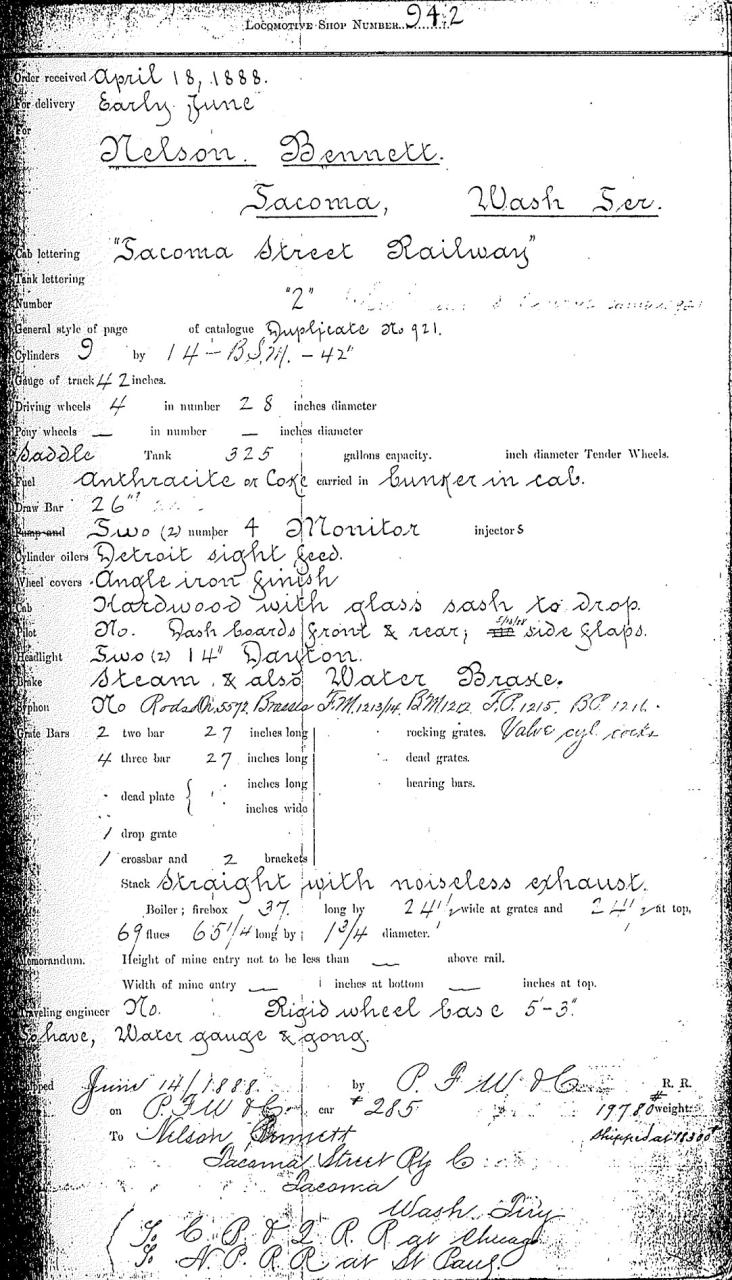 LOCOMOTIVE SHOP NUMBER..942
Order received April 18, 1888.
For delivery Early June
For
Nelson. Bennett.
Tacoma, Wash Ter.
Cab lettering "Tacoma Street Railway"
Tank lettering
Number "2"
General style of page of catalogue Duplicate No 921.
Cylinders 9 by 14 - B.S.M. - 42"
Gauge of track 42 inches.
Driving wheels 4 in number 28 inches diameter
Pony wheels — in number — inches diameter
Saddle Tank 325 gallons capacity. inch diameter Tender Wheels.
Fuel Anthracite or Coke carried in bunker in cab.
Draw Bar 26"
Pump and Two (2) number 4 Monitor injectors
Cylinder oilers Detroit sight feed.
Wheel covers Angle iron finish
Cab Hardwood with glass sash to drop.
Pilot No. Dash boards front & rear; side flaps.
Headlight Two (2) 14" Dayton.
Brake Steam, & also Water Brake.
Syphon No Rods Di.5572. Brasses F.M.1213/14. B.M1212. F.P.1215. B.P. 1216.
Grate Bars 2 two bar 27 inches long rocking grates. Valve cyl. cocks
4 three bar 27 inches long dead grates.
dead plate { inches long bearing bars.
inches wide
1 drop grate
1 crossbar and 2 brackets
Stack Straight with noiseless exhaust.
Boiler; firebox 37. long by 24 1/2 wide at grates and 24 1/2 at top,
69 flues 65 1/4 long by 1 3/4 diameter.
Memorandum. Height of mine entry not to be less than — above rail.
Width of mine entry — inches at bottom — inches at top.
Traveling engineer No. Rigid wheel base 5'-3".
To have, Water gauge & gong.
Shipped June 14/1888. by P. F W & C R. R.
on P. F W & C car # 285 19780# weight.
To Nelson Bennett shipped at 18300#
Tacoma Street Ry C
Tacoma
Wash. Tery
To C. B & Q R. R at Chicago
To N. P. R R at St Paul.